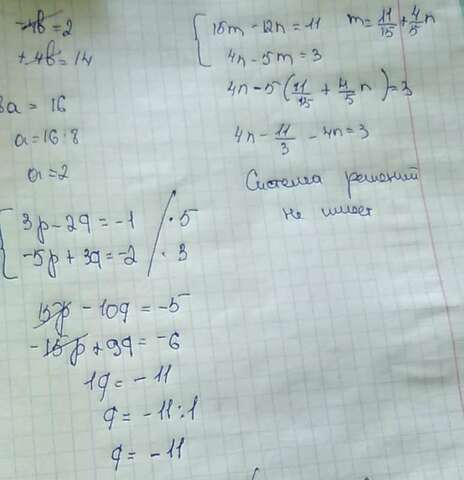 -4b = 2
+4b = 14
8a = 16
a = 16 : 8
a = 2
3p - 2q = -1 / · 5
-5p + 3q = -2 / · 3
15p - 10q = -5
-15p + 9q = -6
1q = -11
q = -11 : 1
q = -11
15m - 12n = 11 m = 11/15 + 4/5 n
4n - 5m = 3
4n - 5 (11/15 + 4/5 n) = 3
4n - 11/3 - 4n = 3
Система решений
не имеет